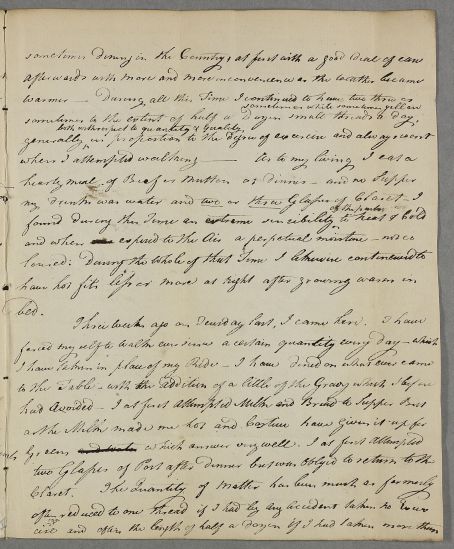 sometimes dining in the Country, at first with a good deal of ease
afterwards with more and more inconvenience as the weather became
warmer — During all this Time I continued to have two three or
sometimes white sometimes yellow
sometimes to the extent of half a Dozen small threads a Day,
both with respect to quantity & quality
generally in proportion to the degree of exercise and always worst
when I attempted walking — As to my living, I eat a
hearty meal of Beef or Mutton at Dinner — and no Supper
my drink was water and two or three Glasses of Claret — I
of the parts
found during this Time an extreme sensibility to heat & cold
and when exposed to the Air a perpetual moisture —
During the whole of that Time I likewise continued to
have hot fits less or more at Night after growing warm in
bed.
Three weeks ago on Tuesday last, I came here. I have
forced myself to walk ever since a certain quantity every day — which
I have taken in place of my Ride — I have dined on whatever came
to the Table — with the addition of a little of the Gravy which I before
had avoided — I at first attempted Milk and Bread to Supper but
as the Milk made me hot and Costive have given it up for
Greens which answer very well. I at first attempted
two Glasses of Port after dinner but was obliged to return to the
Claret. The Quantity of matter has been much as formerly
often reduced to one thread if I had by any accident taken no Exer
cise and often the length of half a dozen if I had taken more than